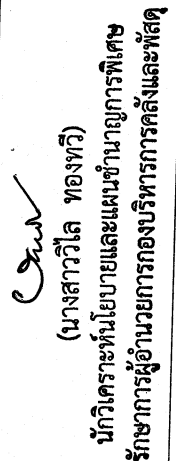 (นางสาววิไล ทองทวี)
นักวิเคราะห์นโยบายและแผนชำนาญการพิเศษ
รักษาการผู้อำนวยการกองบริหารการคลังและพัสดุ